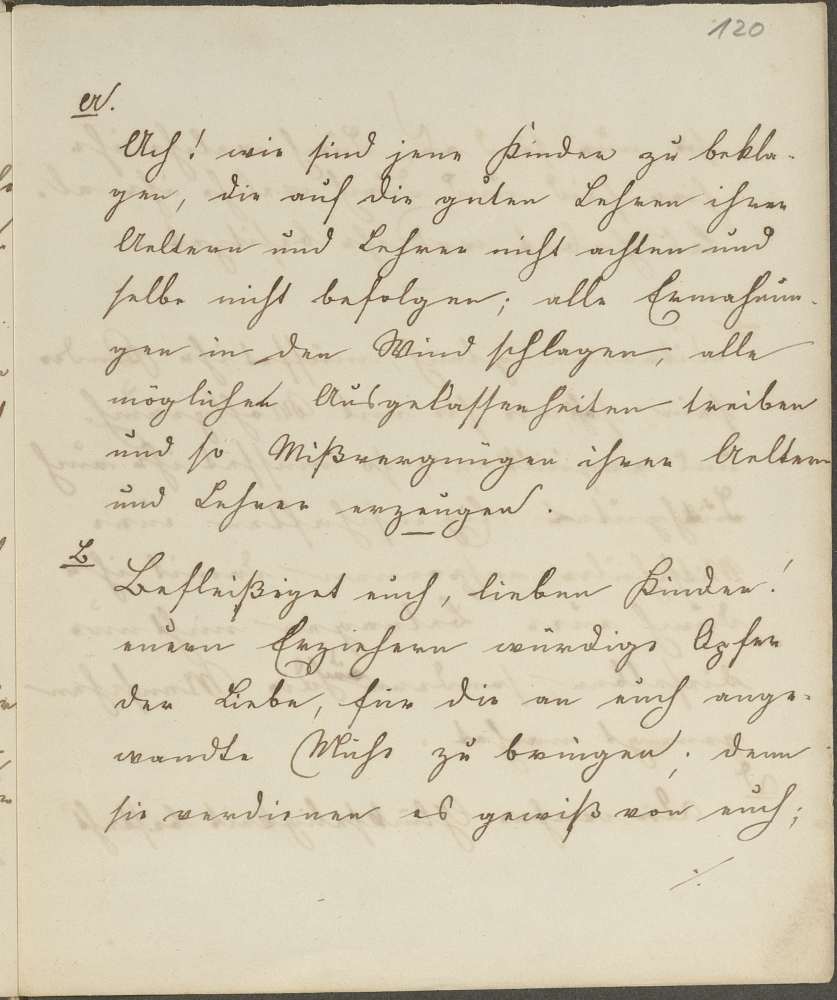 120
a.
Ach! wie sind jene Kinder zu bekla-
gen, die auf die guten Lehren ihrer
Aeltern und Lehrer nicht achten und
selbe nicht befolgen; alle Ermahnun-
gen in den Wind schlagen, alle
möglichen Ausgelassenheiten treiben
und so Mißvergnügen ihren Aeltern
und Lehrer erzeugen.
B
Befleißiget euch, lieben Kinder!
euern Erziehern würdige Opfer
der Liebe, für die an euch ange-
wandte Mühe zu bringen; denn
sie verdienen es gewiß von euch;
./.